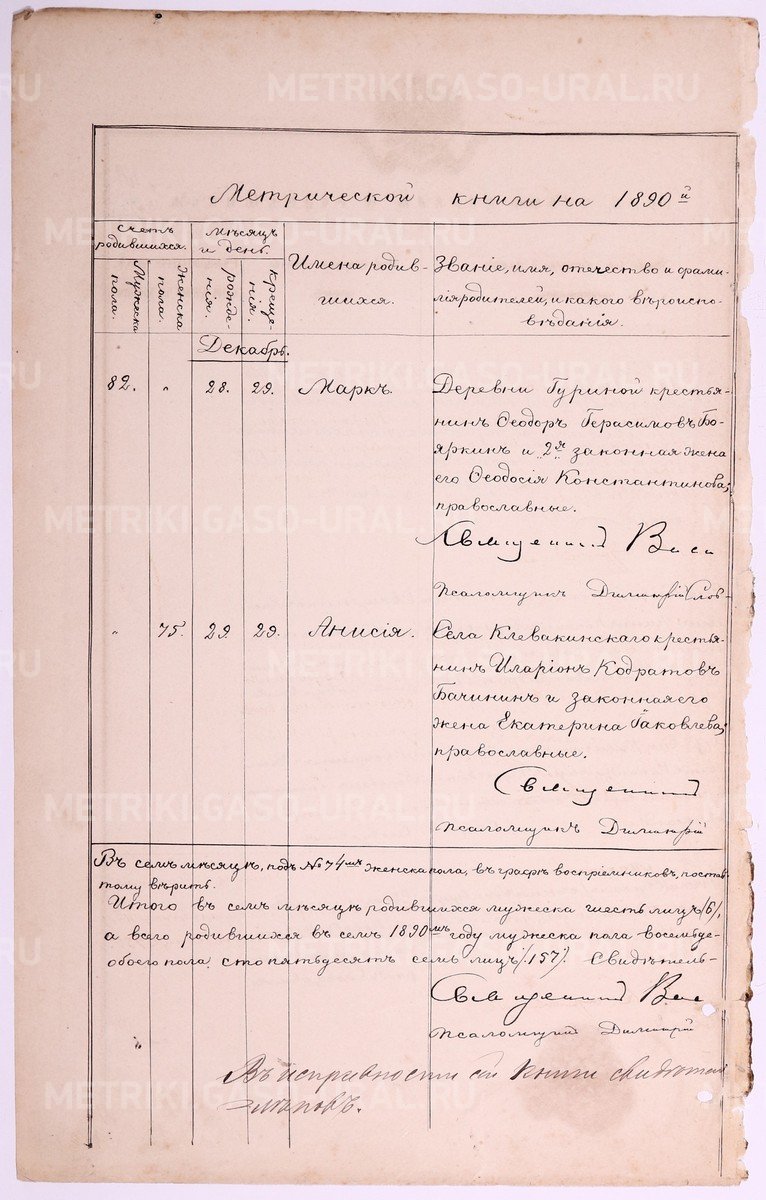 Метрической книги на 1890й
счетъ
родившихся.
мѣсяцъ
и день.
Имена родив-
шихся.
Званіе, имя, отечество и фами-
лія родителей, и какого вѣроиспо-
вѣданія.
Мужеска
пола.
Женска
пола.
рожде-
нія.
креще-
нія.
Декабрь.
82. " 28. 29. Маркъ.
Деревни Гуриной крестья-
нинъ Ѳеодоръ Герасимовъ Бо-
яркинъ и 2я законная жена
его Ѳеодосія Константинова;
православные.
Священникъ Васи
Псаломщикъ Димитрій Слов-
" 75. 29. 29. Анисія.
Села Клевакинскаго крестья-
нинъ Иларіонъ Кодратовъ
Бачининъ и законная его
жена Екатерина Іаковлева;
православные.
Священникъ
Псаломщикъ Димитрій
Въ семъ мѣсяцѣ, подъ № 74мъ женска пола, въ графѣ воспріемниковъ, поста
тому вѣрить.
Итого въ семъ мѣсяцѣ родившихся мужеска шесть лицъ /6/,
а всего родившихся въ семъ 1890мъ году мужеска пола восемьде-
обоего пола сто пятьдесятъ семь лицъ /:157:/. Свидѣтель-
Священникъ Вас
Псаломщикъ Димитрій
Въ исправности сей книги свидѣтел
METRIKI.GASO-URAL.RU